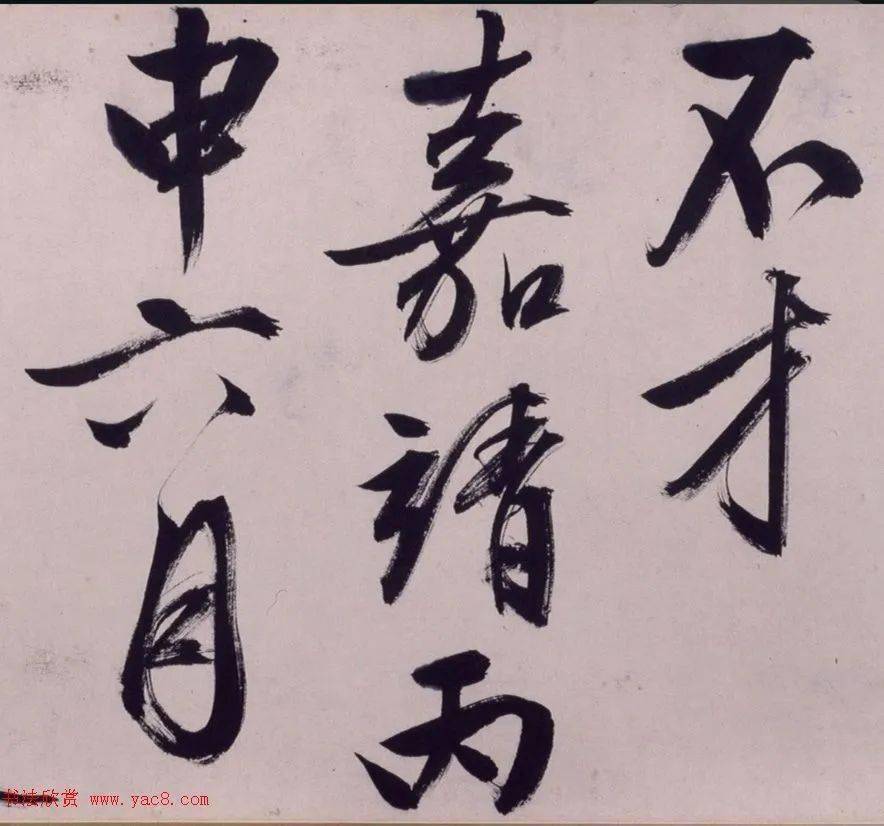 不才
嘉靖丙
申六月
书法欣赏 www.yac8.com